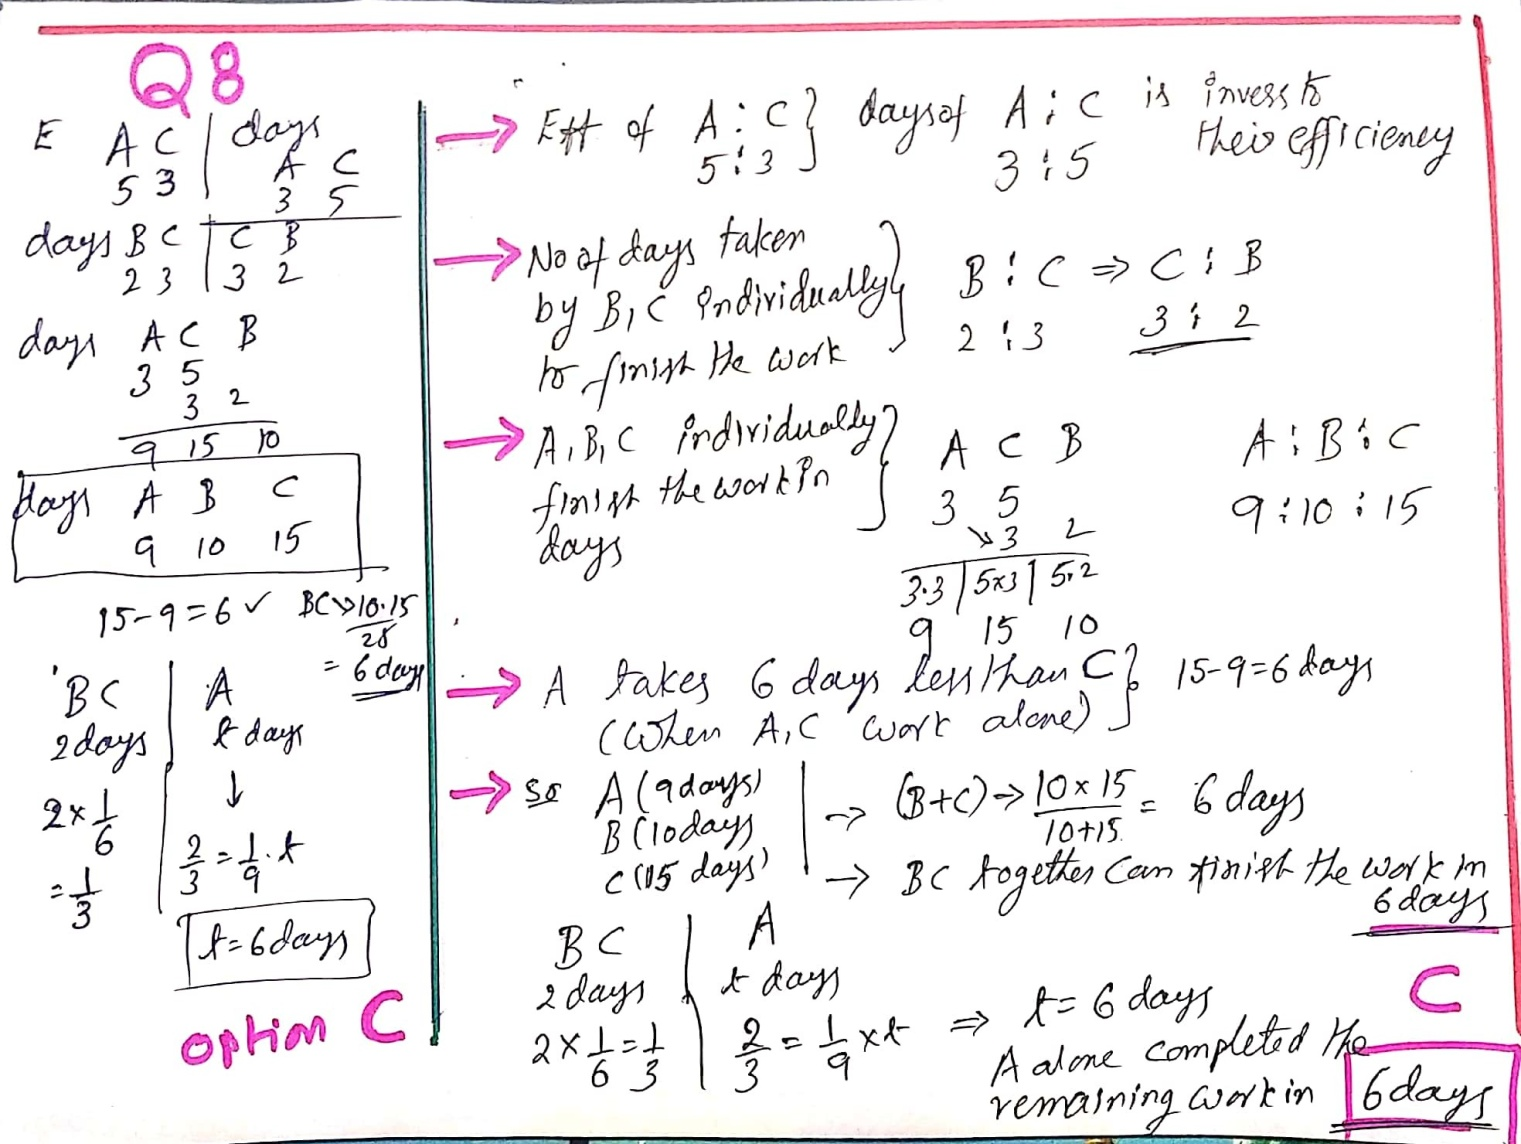 Q8
E A C | days
5 3 | A C
3 5
days B C | C B
2 3 | 3 2
days A C B
3 5
3 2
9 15 10
days A B C
9 10 15
15-9=6 ✓ BC→ 10·15
25
= 6 days
BC | A
2 days | t days
↓
2×1/6 | 2/3 = 1/9 · t
= 1/3
t=6days
option C
→ Eff of A : C } days of A : C is invess to
5 : 3 3 : 5 their efficiency
→ No of days taken
by B, C individually } B : C ⇒ C : B
to finish the work 2 : 3 3 : 2
→ A, B, C individually } A C B A : B : C
finish the work in 3 5 9 : 10 : 15
days ↘3 2
3·3 | 5×3 | 5·2
9 15 10
→ A takes 6 days less than C } 15-9=6 days
(when A, C work alone)
→ so A (9days) | → (B+C) → 10×15/10+15 = 6 days
B (10days
C (15 days) | → BC together can finish the work in
6 days
BC | A
2 days | t days
2×1/6=1/3 | 2/3 = 1/9 ×t ⇒ t= 6 days
C
A alone completed the
remaining work in 6days